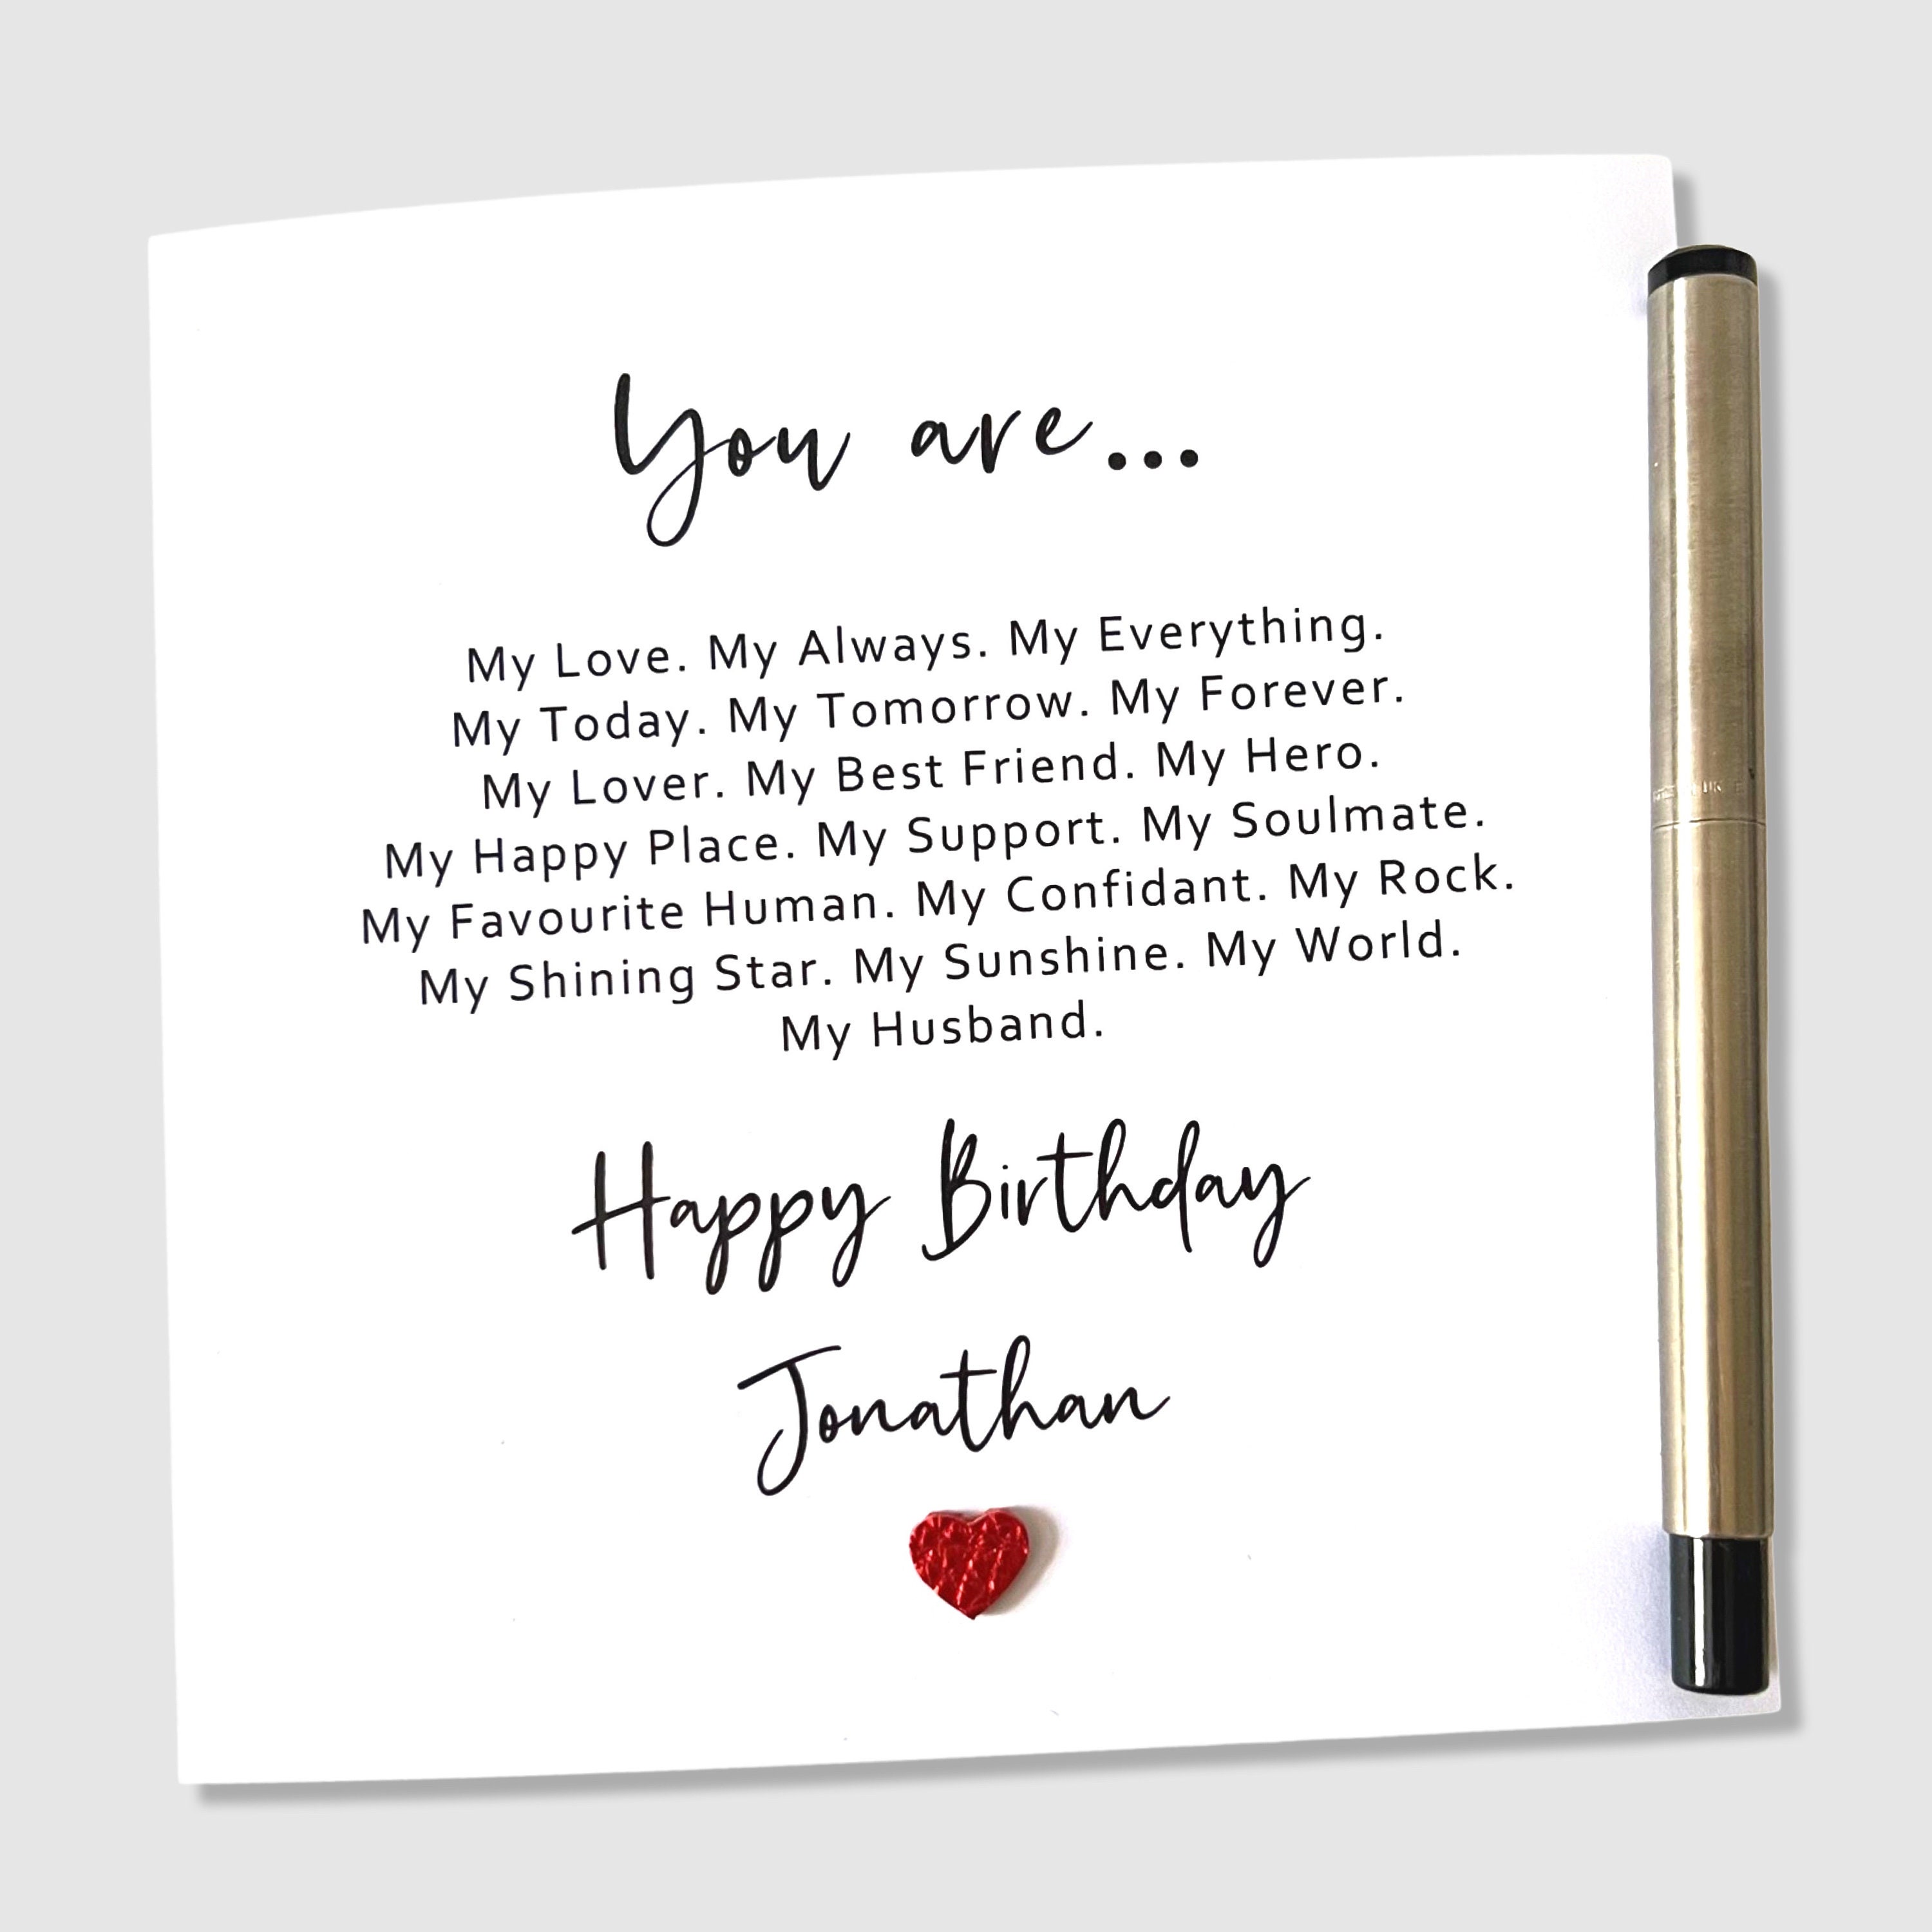 You are...
My Love. My Always. My Everything.
My Today. My Tomorrow. My Forever.
My Lover. My Best Friend. My Hero.
My Happy Place. My Support. My Soulmate.
My Favourite Human. My Confidant. My Rock.
My Shining Star. My Sunshine. My World.
My Husband.
Happy Birthday
Jonathan